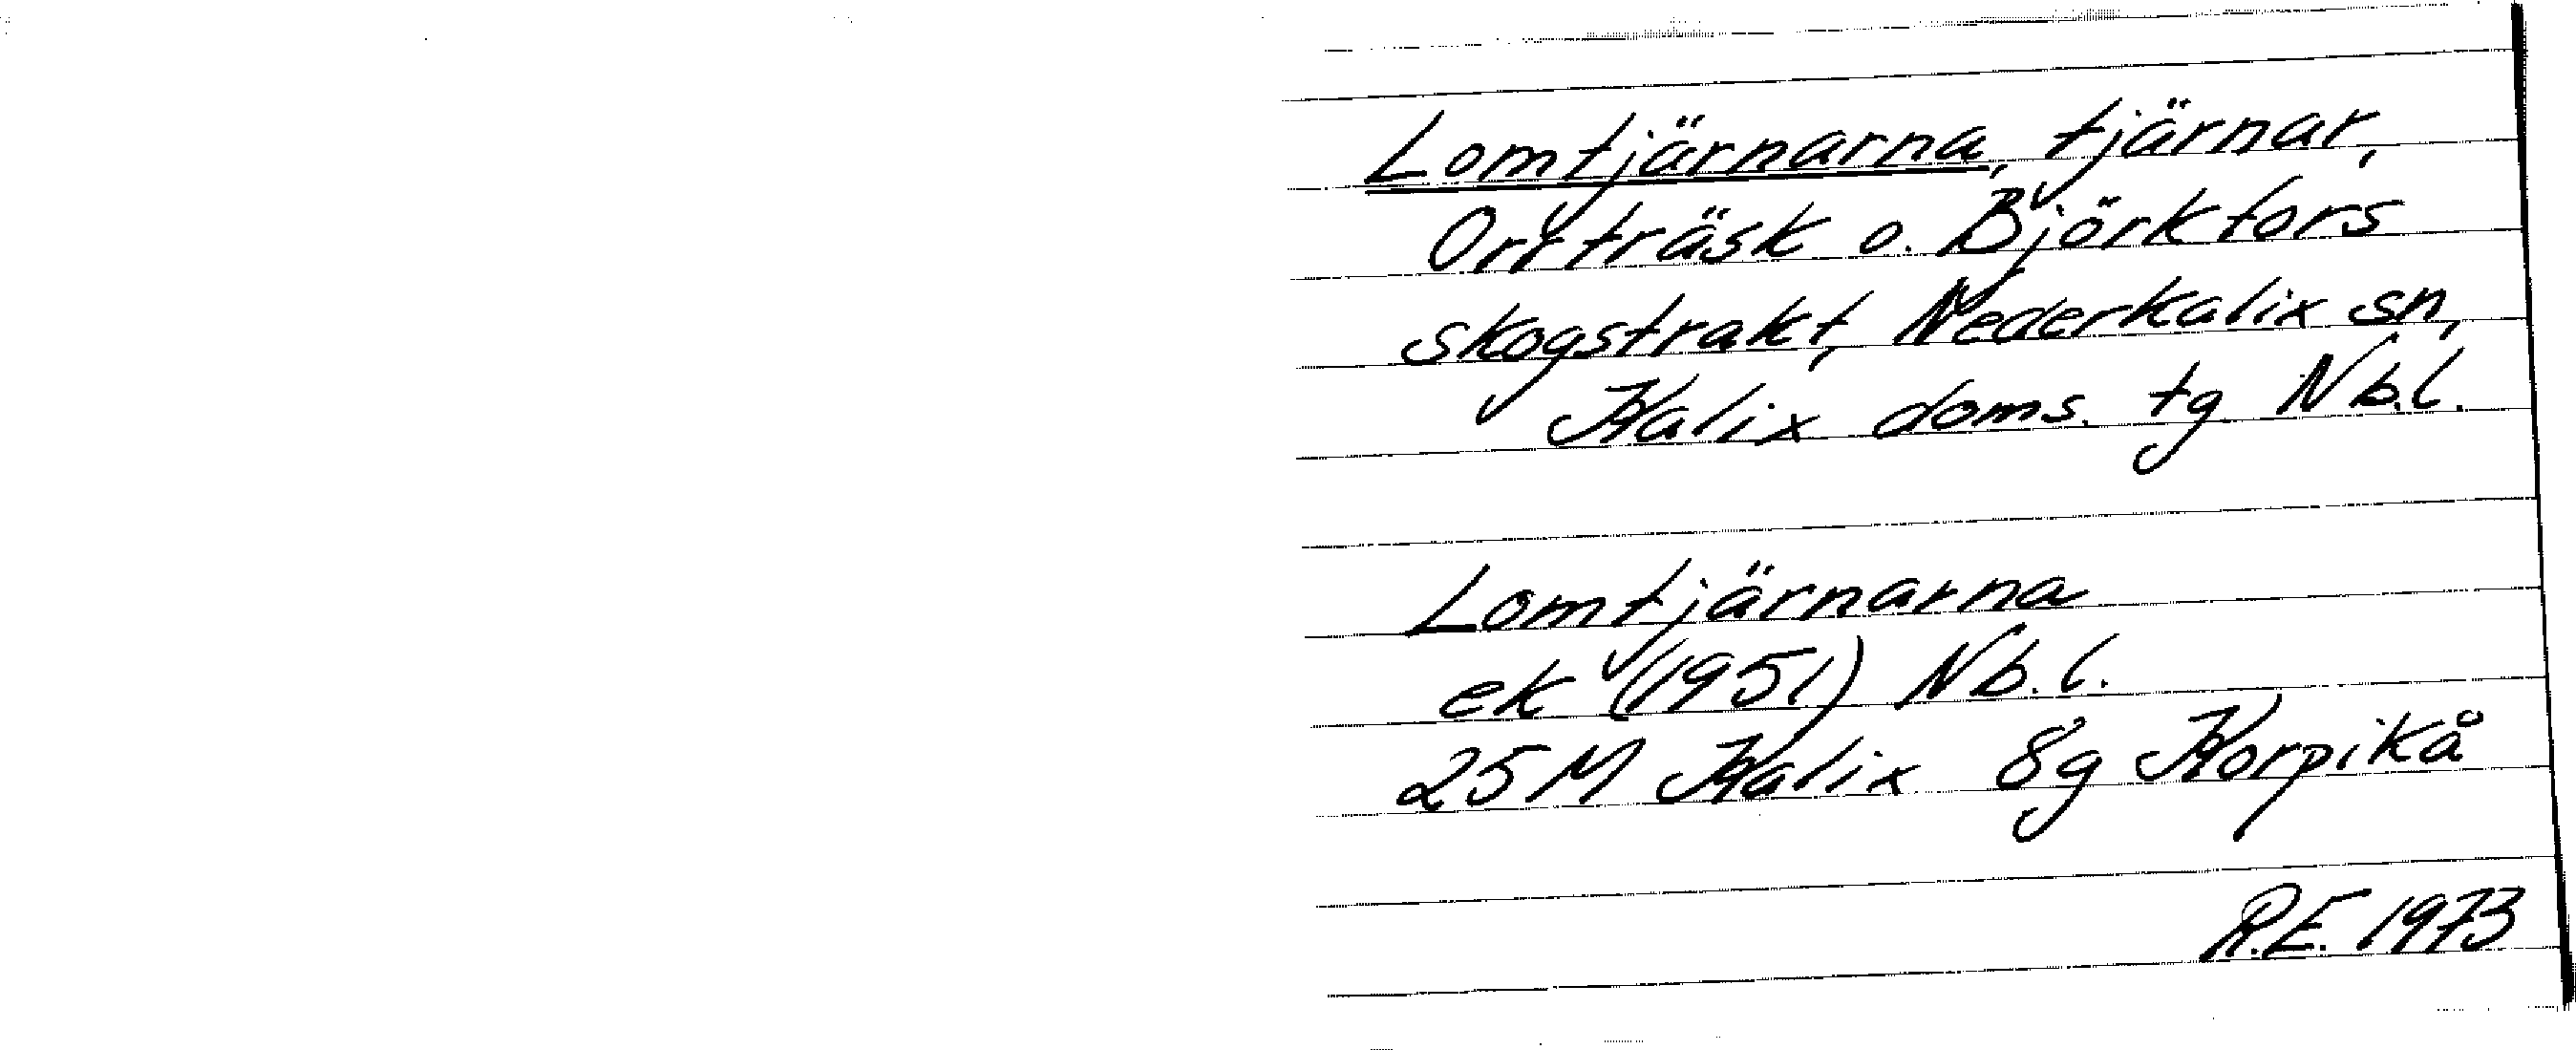 Lomtjärnarna, tjärnar,
Orrträsk o. Björkfors
skogstrakt, Nederkalix sn,
Kalix doms. tg Nb.l.
Lomtjärnarna
ek (1951) Nb.l.
25 M Kalix 8g Korpikå
R.E. 1973